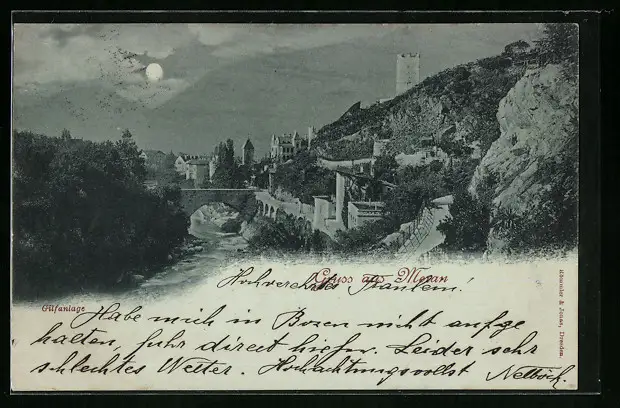 Gruss aus Meran
Gilfanlage
Stengel & Jonas, Dresden.
Hochverehrtes Fräulein!
Habe mich in Bozen nicht aufge
halten, fuhr direct hieher. Leider sehr
schlechtes Wetter. Hochachtungsvollst